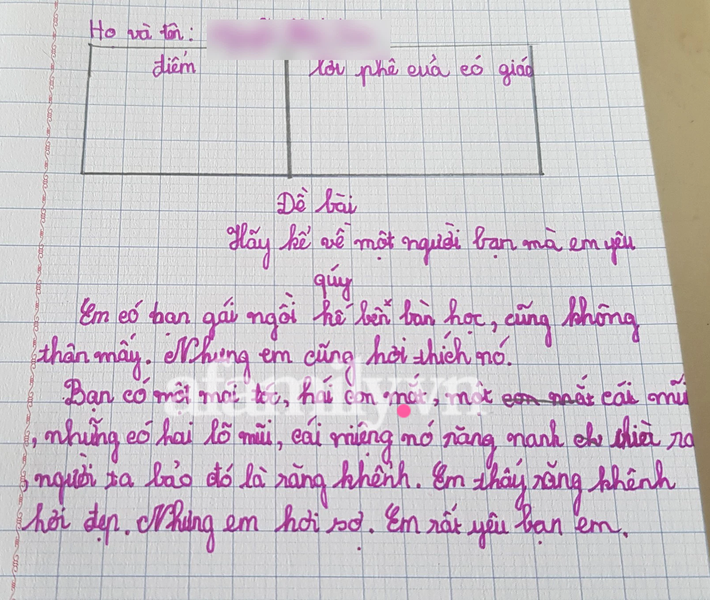 Họ và tên:
điểm
lời phê cuả cô giáo
Đề bài
Hãy kể về một người bạn mà em yêu
quý
Em có bạn gái ngồi kế bên bàn học, cũng không
thân mấy. Nhưng em cũng hơi thích nó.
Bạn có một mái tóc, hai con mắt, một con mắt cái mũi
, nhưng có hai lỗ mũi, cái miệng nó răng nanh chìa ra
, người ta bảo đó là răng khểnh. Em thấy răng khểnh
hơi đẹp. Nhưng em hơi sợ. Em rất yêu bạn em.
afamily.vn